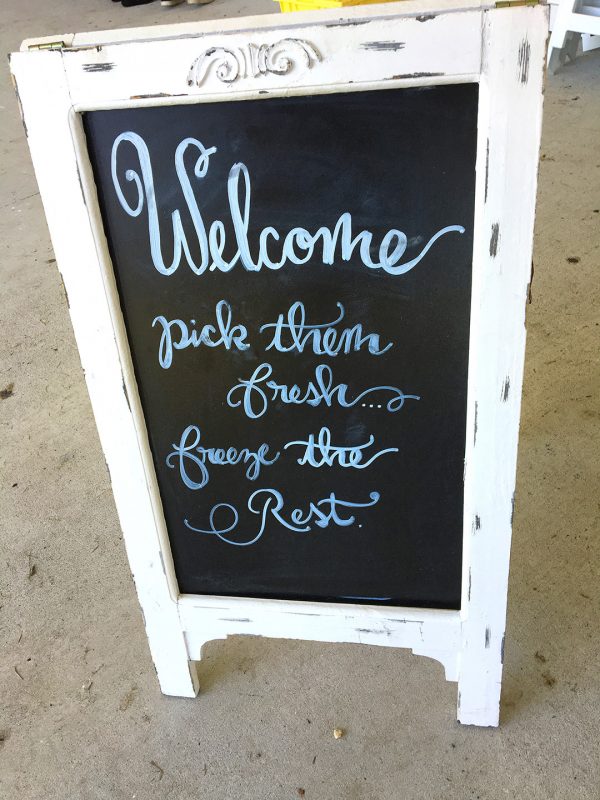 Welcome
pick them
fresh...
freeze the
Rest.